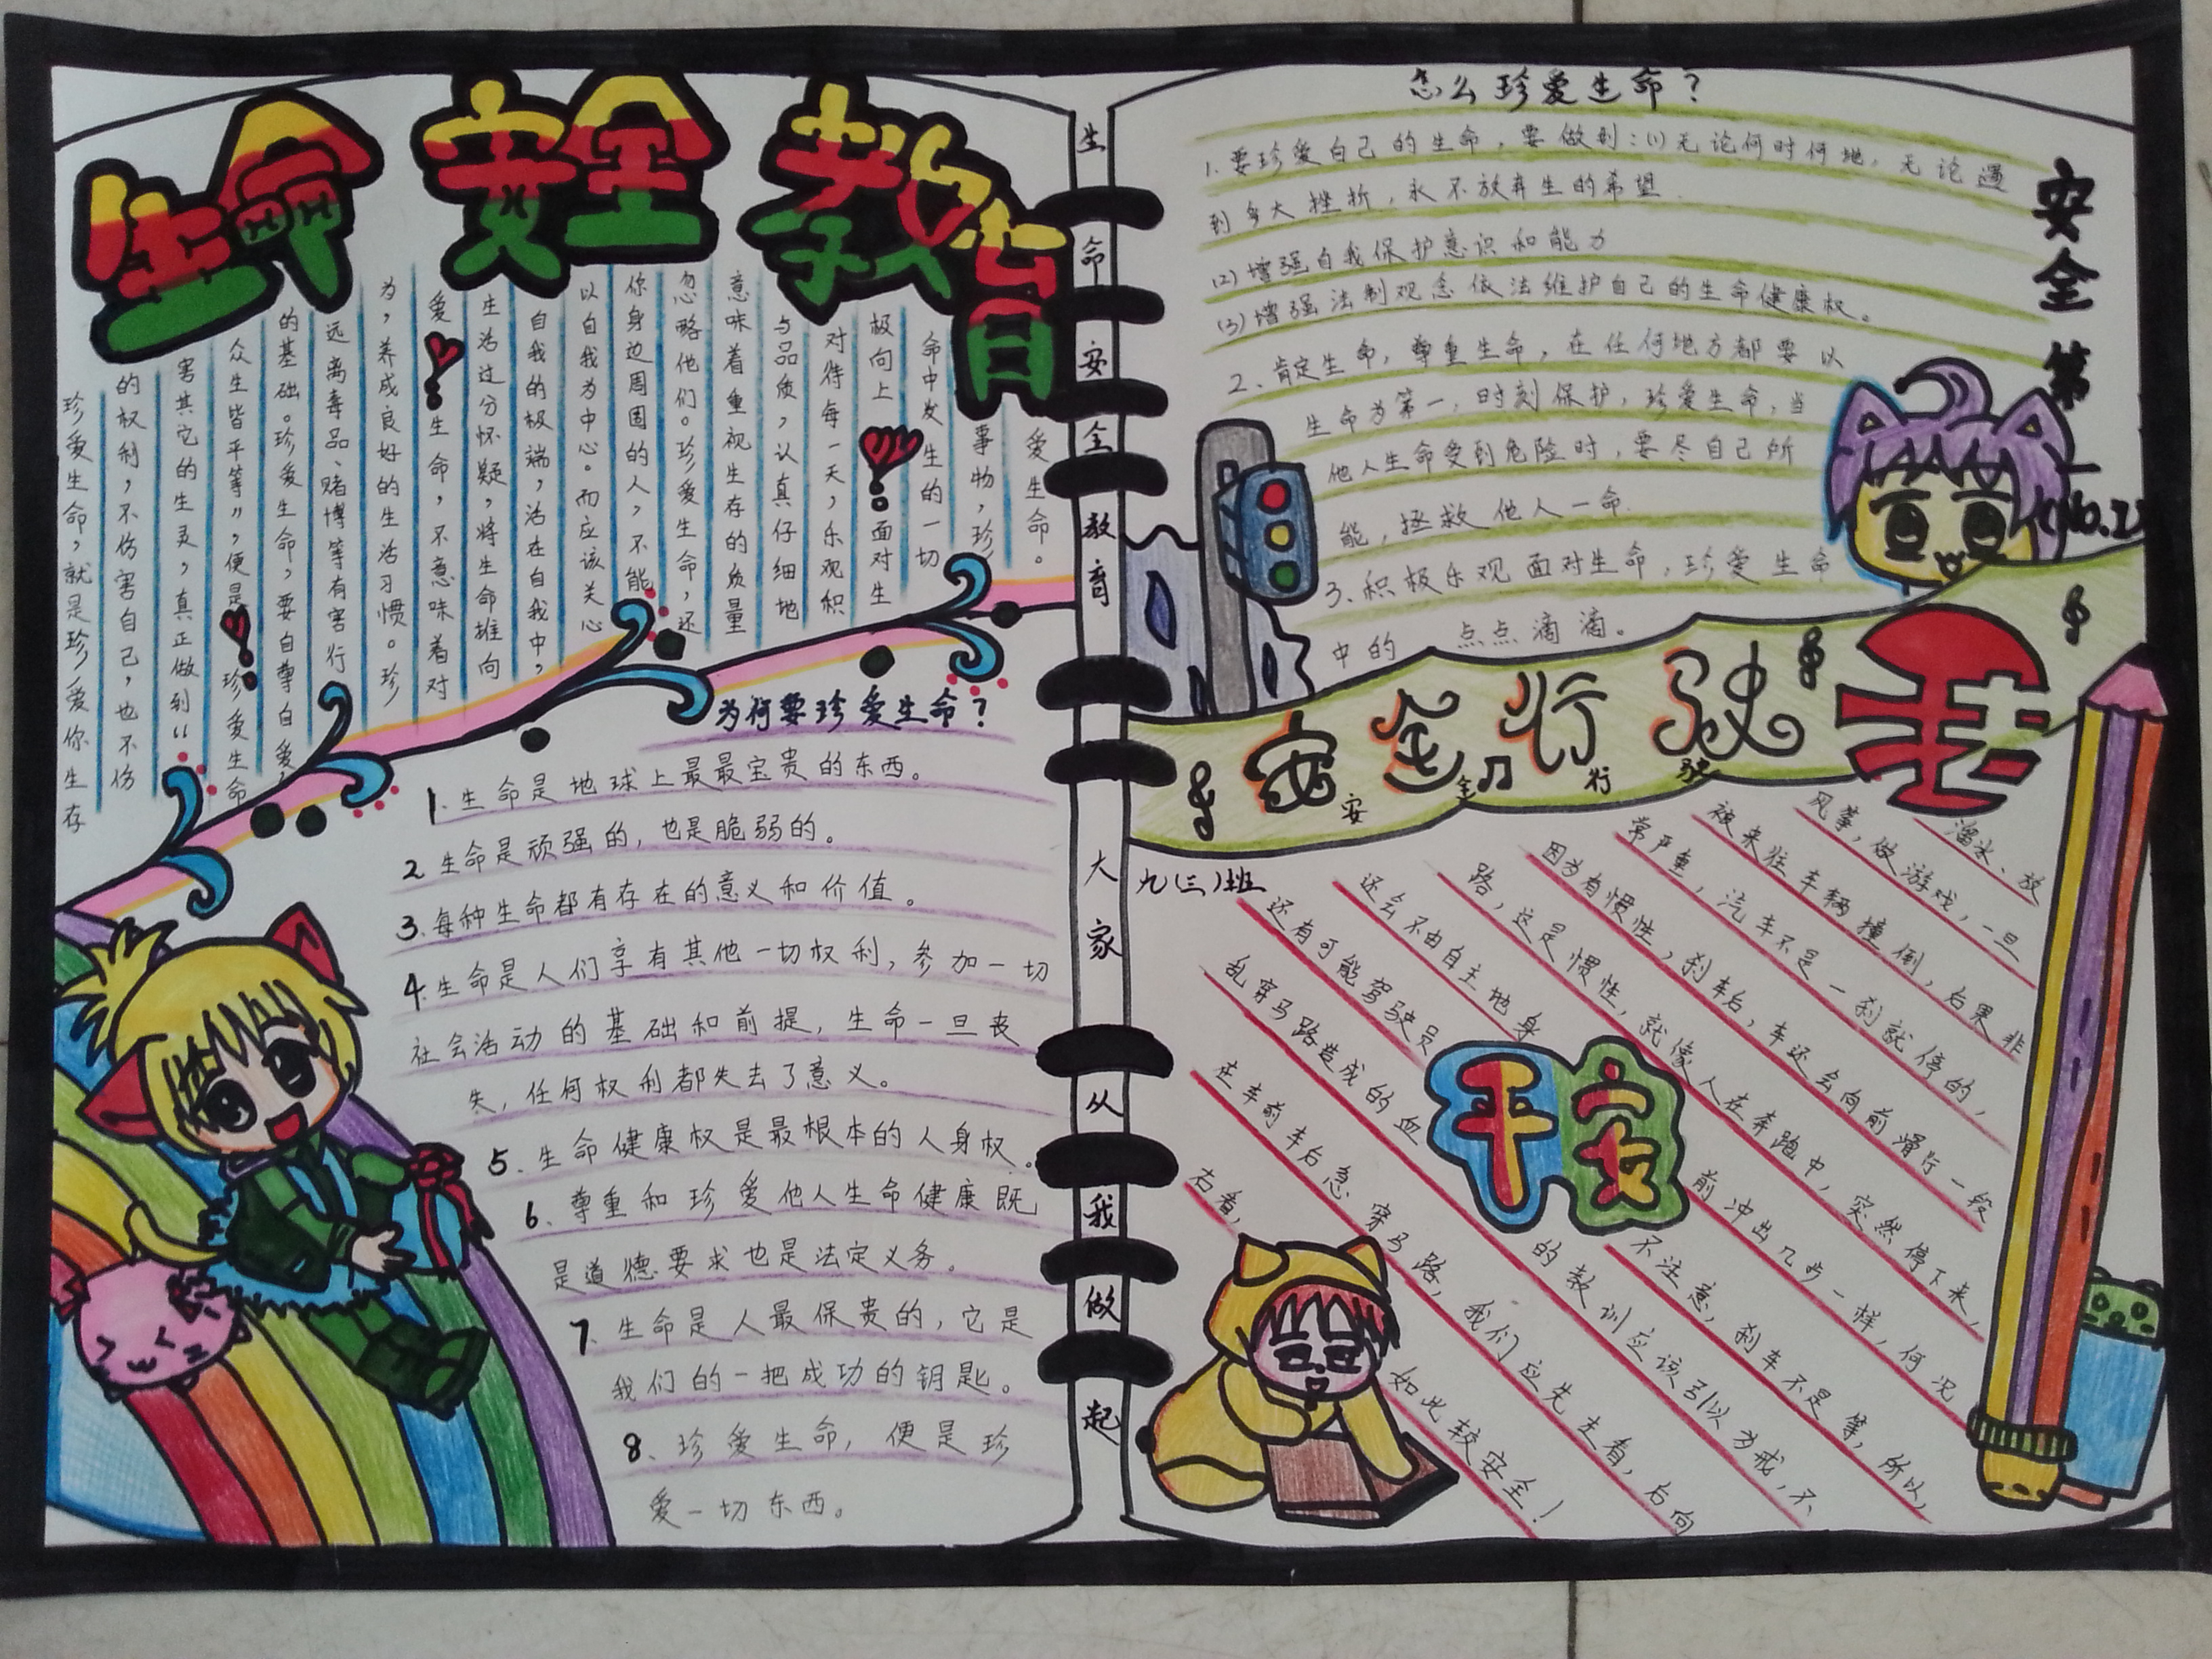 生命安全教育
珍爱生命,就是珍爱你生存
的权利,不伤害自己,也不伤
害其它的生灵,真正做到“
众生皆平等”,便是珍爱生命
的基础。珍爱生命,要自尊自爱,
远离毒品、赌博等有害行
为,养成良好的生活习惯。珍
爱生命,不意味着对
生活过分怀疑,将生命推向
自我的极端,活在自我中,
以自我为中心。而应该关心
你身边周围的人,不能
忽略他们。珍爱生命,还
意味着重视生存的质量
与品质,认真仔细地
对待每一天,乐观积
极向上面对生
命中发生的一切
事物,珍
爱生命。
为何要珍爱生命?
1.生命是地球上最最宝贵的东西。
2 生命是顽强的,也是脆弱的。
3.每种生命都有存在的意义和价值。
4.生命是人们享有其他一切权利,参加一切
社会活动的基础和前提,生命一旦丧
失,任何权利都失去了意义。
5.生命健康权是最根本的人身权。
6、尊重和珍爱他人生命健康既
是道德要求也是法定义务。
7、生命是人最保贵的,它是
我们的一把成功的钥匙。
8、珍爱生命,便是珍
爱一切东西。
生命安全教育大家从我做起
怎么珍爱生命?
1.要珍爱自己的生命,要做到:(1)无论何时何地,无论遇
到多大挫折,永不放弃生的希望.
(2)增强自我保护意识和能力
(3)增强法制观念依法维护自己的生命健康权。
2、肯定生命,尊重生命,在任何地方都要以
生命为第一,时刻保护,珍爱生命,当
他人生命受到危险时,要尽自己所
能,拯救他人一命.
3、积极乐观面对生命,珍爱生命
中的 点点滴滴。
安全第一
(No.1)
安全行驶
安全行驶
九(三)班
溜冰、放
风筝,做游戏,一旦
被来往车辆撞倒,后果非
常严重,汽车不是一刹就停的,
因为有惯性,刹车后,车还会向前滑行一段
路,这是惯性,就像人在奔跑中,突然停下来,
还会不由自主地身前冲出几步一样,何况
还有可能驾驶员不注意,刹车不是等,所以,
乱穿马路造成的血的教训应该引以为戒,不
在车前车后急穿马路,我们应先左看,右向
右看,如此较安全!
平安